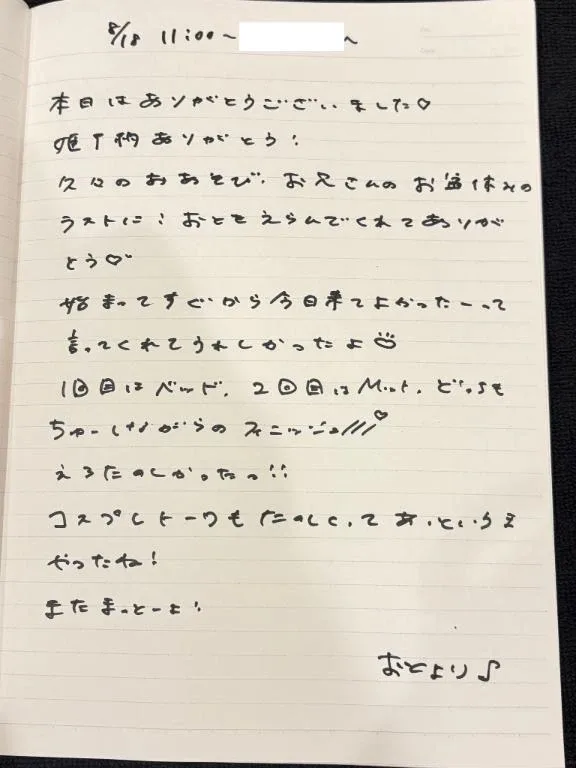 8/18 11:00〜 〜
本日はありがとうございました♡
姫予約ありがとう!
久々のおあそび、お兄さんのお盆休みの
ラストに!おとをえらんでくれてありが
とう♡
始まってすぐから今日来てよかったーって
言ってくれてうれしかったよ
1回目はベッド、2回目はMット、どっちも
ちゅーしながらのフィニッシュ///♡
えろたのしかったっ!!
コスプレトークもたのしくってあっというま
やったね!
またまっとーよ!
おとより♪